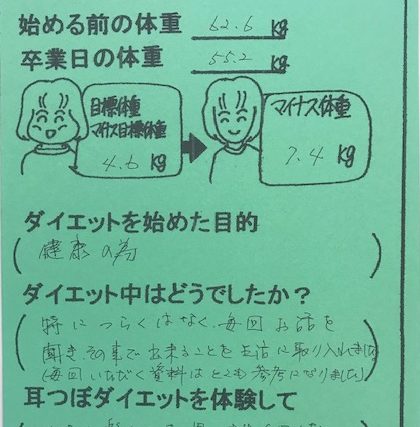 始める前の体重 62.6 kg
卒業日の体重 55.2 kg
目標体重
マイナス目標体重
4.6 kg
マイナス体重
7.4 kg
ダイエットを始めた目的
(健康の為)
ダイエット中はどうでしたか？
特につらくはなく、毎回お話を
聞き、その中で出来ることを生活に取り入れました
(毎回いただく資料はとても参考になりました)
耳つぼダイエットを体験して